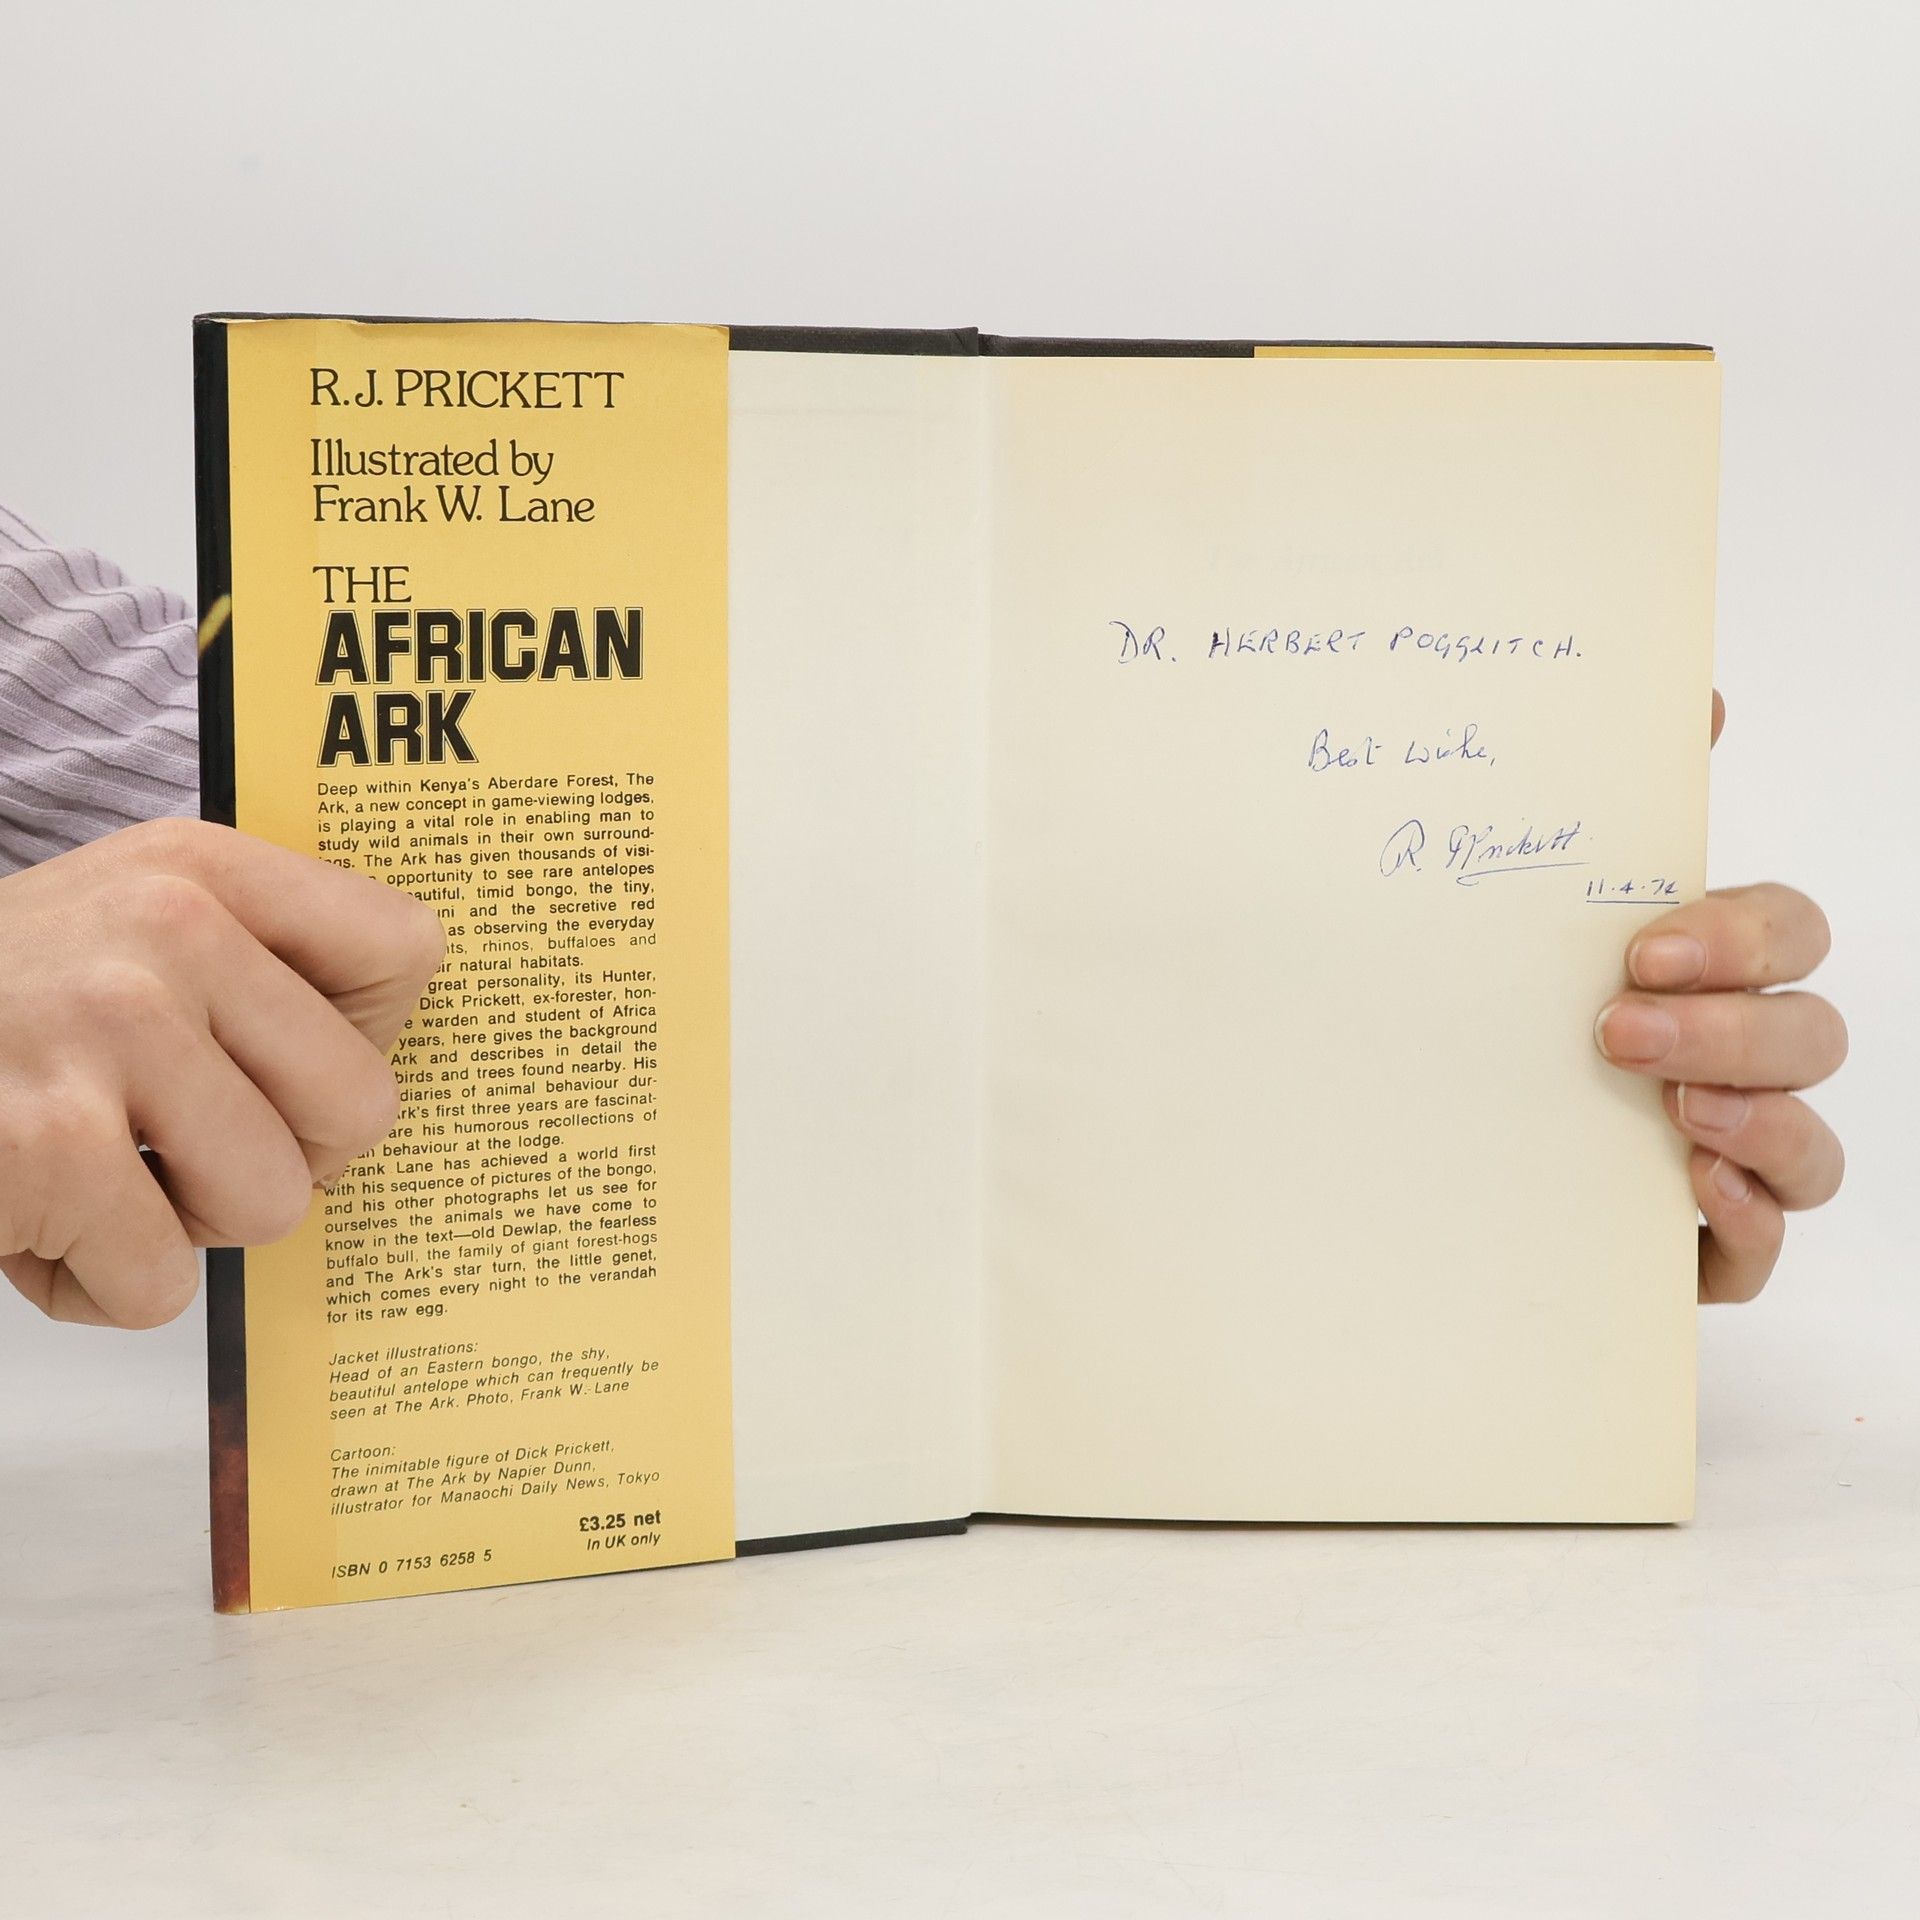 R.J. PRICKETT
Illustrated by
Frank W. Lane
THE
AFRICAN
ARK
Deep within Kenya's Aberdare Forest, The
Ark, a new concept in game-viewing lodges,
is playing a vital role in enabling man to
study wild animals in their own surround-
ings. The Ark has given thousands of visi-
opportunity to see rare antelopes
beautiful, timid bongo, the tiny,
and the secretive red
as observing the everyday
rhinos, buffaloes and
natural habitats.
great personality, its Hunter,
Dick Prickett, ex-forester, hon-
warden and student of Africa
years, here gives the background
Ark and describes in detail the
birds and trees found nearby. His
diaries of animal behaviour dur-
Ark's first three years are fascinat-
are his humorous recollections of
behaviour at the lodge.
Frank Lane has achieved a world first
with his sequence of pictures of the bongo,
and his other photographs let us see for
ourselves the animals we have come to
know in the text—old Dewlap, the fearless
buffalo bull, the family of giant forest-hogs
and The Ark's star turn, the little genet,
which comes every night to the verandah
for its raw egg.
Jacket illustrations:
Head of an Eastern bongo, the shy,
beautiful antelope which can frequently be
seen at The Ark. Photo, Frank W. Lane
Cartoon:
The inimitable figure of Dick Prickett,
drawn at The Ark by Napier Dunn,
illustrator for Manaochi Daily News, Tokyo
£3.25 net
In UK only
ISBN 0 7153 6258 5
DR. HERBERT POGGLITCH.
Best wishes,
R. J Prickett.
11.4.74